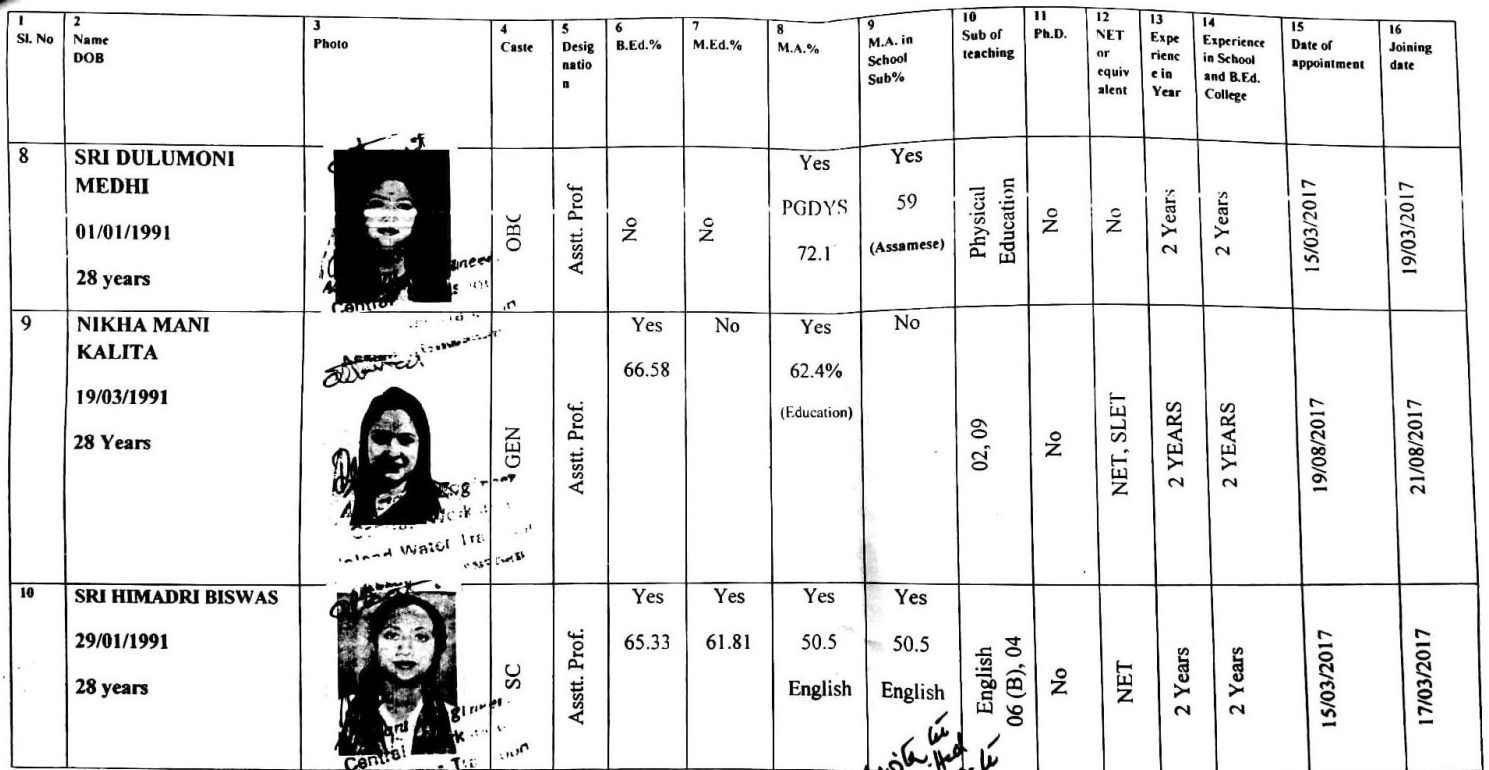 1 2 3 4 5 6 7 8 9 10 11 12 13 14 15 16
Sl. No Name DOB Photo Caste Desig natio n B.Ed.% M.Ed.% M.A.% M.A. in School Sub% Sub of teaching Ph.D. NET or equiv alent Expe rienc e in Year Experience in School and B.Ed. College Date of appointment Joining date
8
SRI DULUMONI
MEDHI
01/01/1991
28 years
OBC
Asstt. Prof
No
No
Yes
PGDYS
72.1
Yes
59
(Assamese)
Physical
Education
No
No
2 Years
2 Years
15/03/2017
19/03/2017
Central
9
NIKHA MANI
KALITA
19/03/1991
28 Years
GEN
Asstt. Prof.
Yes
66.58
No
Yes
62.4%
(Education)
No
02, 09
No
NET, SLET
2 YEARS
2 YEARS
19/08/2017
21/08/2017
Water
10
SRI HIMADRI BISWAS
29/01/1991
28 years
SC
Asstt. Prof.
Yes
65.33
Yes
61.81
Yes
50.5
English
Yes
50.5
English
English
06 (B), 04
No
NET
2 Years
2 Years
15/03/2017
17/03/2017
Central